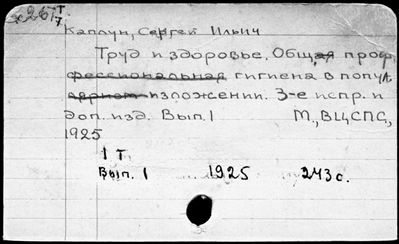 Каплун, Сергей Ильич
Труд и здоровье. Общая проф
фессиональная гигиена в попул
изложении. 3-е испр. и
доп. изд. Вып. 1 М., ВЦСПС,
1925
1 т.
Вып. 1 1925 243 с.